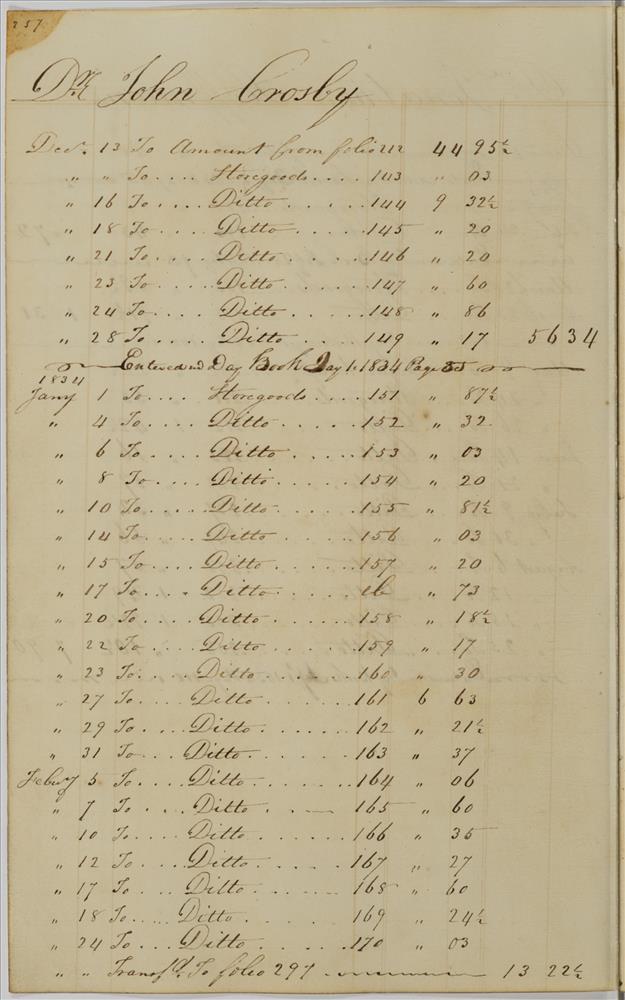 257
Dr. John Crosby
Decr. 13 To Amount from folio 212 44 95½
" " To .... Storegoods .... 143 " 03
" 16 To .... Ditto ..... 144 9 32½
" 18 To .... Ditto ..... 145 " 20
" 21 To .... Ditto ..... 146 " 20
" 23 To .... Ditto ..... 147 " 60
" 24 To .... Ditto ..... 148 " 86
" 28 To .... Ditto ..... 149 " 17 56 34
Entered in Day Book Jay 1. 1834 Page
1834
Jany 1 To .... Storegoods .... 151 " 87½
" 4 To .... Ditto ..... 152 " 32
" 6 To .... Ditto ..... 153 " 03
" 8 To .... Ditto ..... 154 " 20
" 10 To .... Ditto ..... 155 " 81½
" 14 To .... Ditto ..... 156 " 03
" 15 To .... Ditto ..... 157 " 20
" 17 To .... Ditto ..... ib " 73
" 20 To .... Ditto ..... 158 " 18½
" 22 To .... Ditto ..... 159 " 17
" 23 To .... Ditto ..... 160 " 30
" 27 To .... Ditto ..... 161 6 63
" 29 To .... Ditto ..... 162 " 21½
" 31 To .... Ditto ..... 163 " 37
Febuy 5 To .... Ditto ..... 164 " 06
" 7 To .... Ditto ..... 165 " 60
" 10 To .... Ditto ..... 166 " 35
" 12 To .... Ditto ..... 167 " 27
" 17 To .... Ditto ..... 168 " 60
" 18 To .... Ditto ..... 169 " 24½
" 24 To .... Ditto ..... 170 " 03
" " Transfd. To folio 297 13 22½